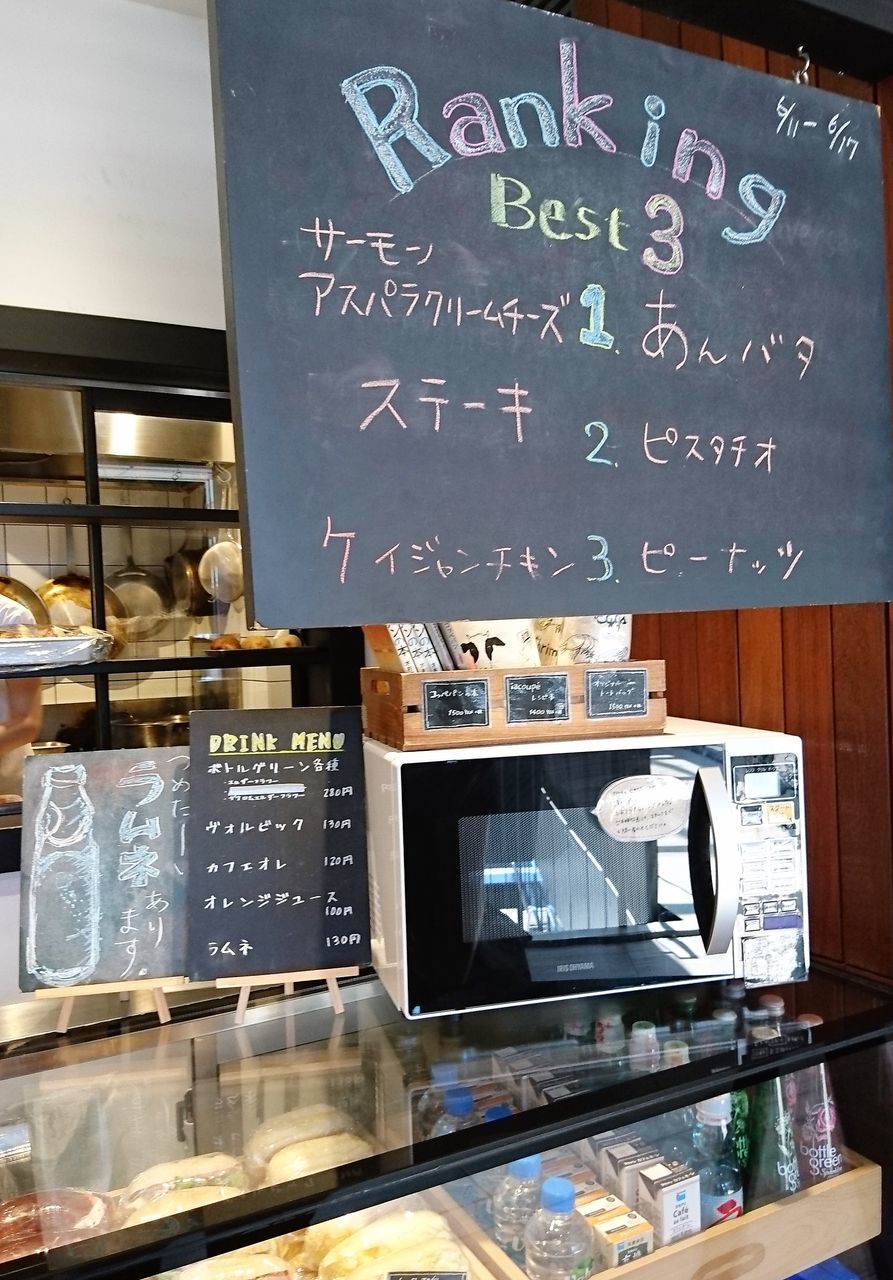 Ranking
6/11-6/17
Best 3
サーモン
アスパラクリームチーズ 1. あんバタ
ステーキ 2. ピスタチオ
ケイジャンチキン 3. ピーナッツ
コッペパンの本
¥1500
&coupé
レシピ本
¥1400
オリジナル
トートバッグ
つめたーい
ラムネ
あり
ます。
DRINK MENU
ボトルグリーン各種
・エルダーフラワー
280円
ヴォルビック 130円
カフェオレ 120円
オレンジジュース
100円
ラムネ 130円
IRIS OHYAMA
スタート
bottle
green
Café
au lait